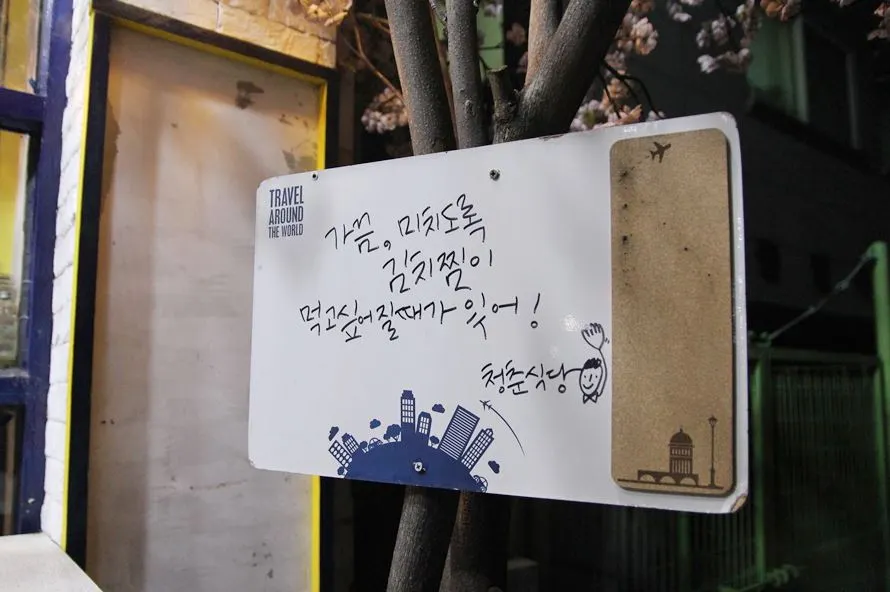 TRAVEL
AROUND
THE WORLD
가끔, 미치도록
김치찜이
먹고싶어질때가 있어!
청춘식당